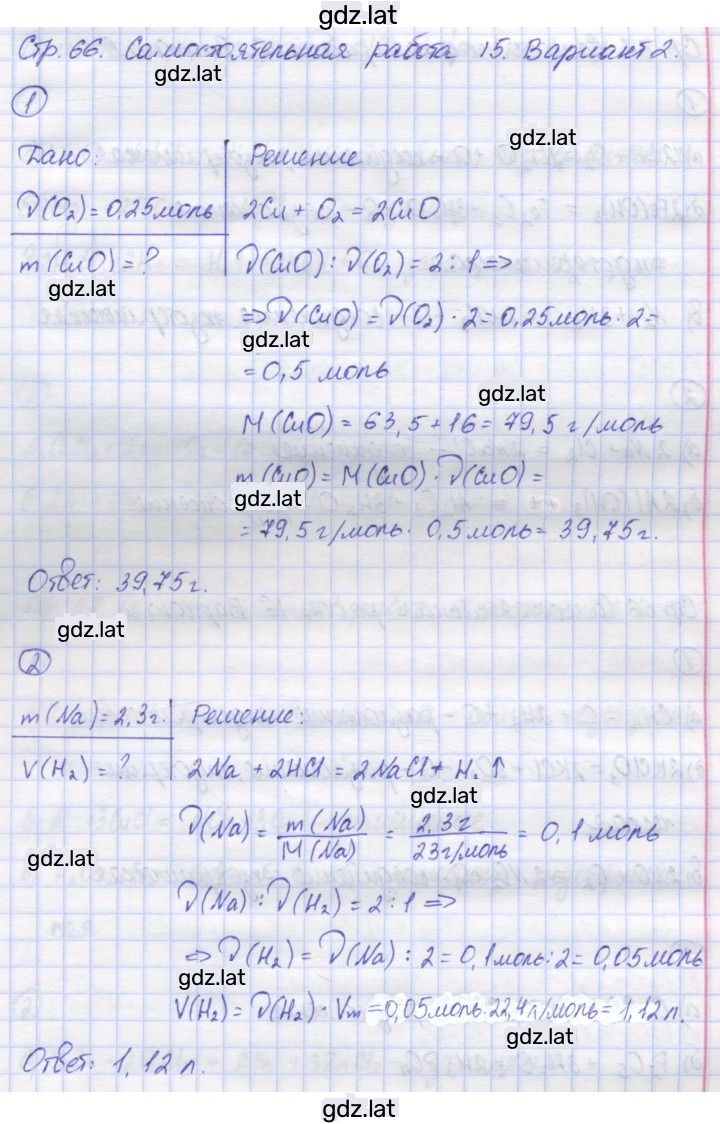 gdz.lat
Стр. 66. Самостоятельная работа 15. Вариант 2.
gdz.lat
①
gdz.lat
Дано: Решение
ν(O₂) = 0,25 моль 2Cu + O₂ = 2CuO
m(CuO) = ? ν(CuO) : ν(O₂) = 2 : 1 =>
gdz.lat
=> ν(CuO) = ν(O₂) · 2 = 0,25 моль · 2 =
gdz.lat
= 0,5 моль
gdz.lat
M(CuO) = 63,5 + 16 = 79,5 г/моль
m(CuO) = M(CuO) · ν(CuO) =
gdz.lat
= 79,5 г/моль · 0,5 моль = 39,75 г.
Ответ: 39,75 г.
gdz.lat
②
m(Na) = 2,3 г. Решение:
V(H₂) = ? 2Na + 2HCl = 2NaCl + H₂ ↑
gdz.lat
ν(Na) = m(Na) / M(Na) = 2,3 г / 23 г/моль = 0,1 моль
gdz.lat
ν(Na) : ν(H₂) = 2 : 1 =>
=> ν(H₂) = ν(Na) : 2 = 0,1 моль : 2 = 0,05 моль
gdz.lat
V(H₂) = ν(H₂) · Vm = 0,05 моль · 22,4 л/моль = 1,12 л.
gdz.lat
Ответ: 1,12 л.
gdz.lat